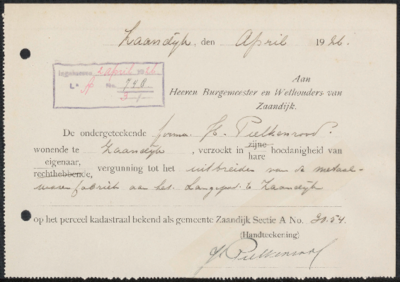 Zaandijk, den April 1926.
Ingekomen 2 April 1926
L. A No. 748
3-1-
Aan
Heeren Burgemeester en Wethouders van
Zaandijk.
De ondergeteekende firma H. Pielkenrood.
wonende te Zaandijk, verzoekt in zijne hoedanigheid van
hare
eigenaar,
rechthebbende, vergunning tot het uitbreiden van de metaal-
warenfabriek aan het Langepad te Zaandijk
op het perceel kadastraal bekend als gemeente Zaandijk Sectie A No. 3054.
(Handteekening)
H Pielkenrood